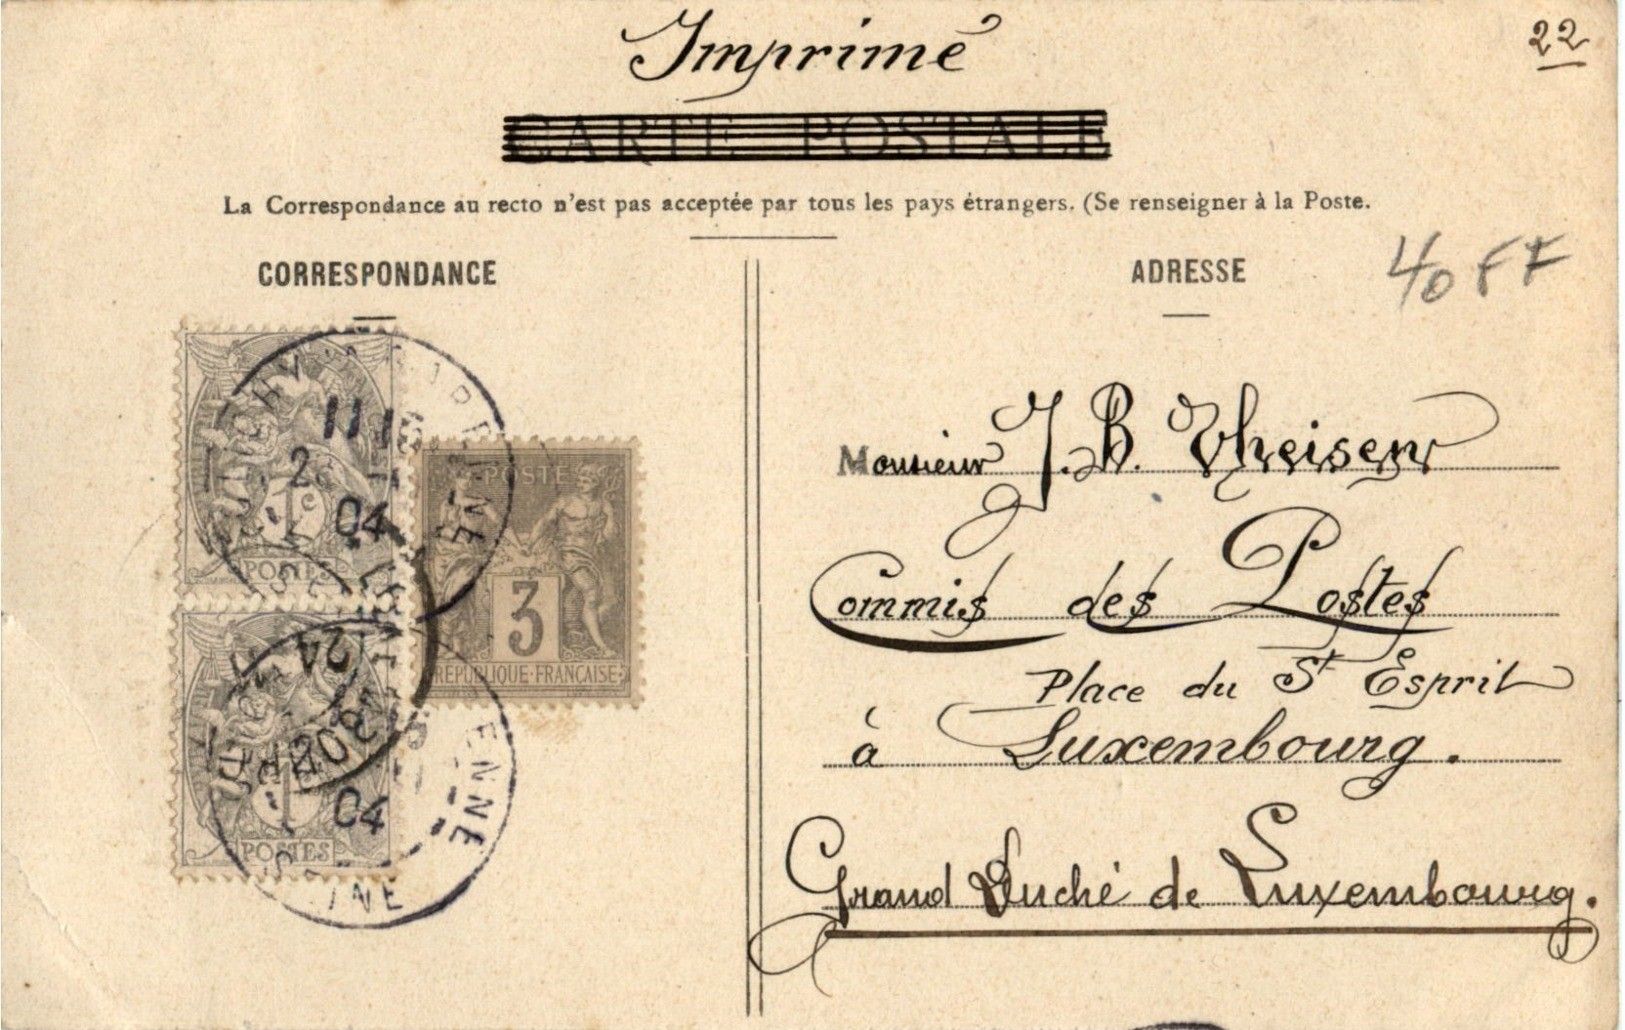 Imprimé
22
CARTE POSTALE
La Correspondance au recto n'est pas acceptée par tous les pays étrangers. (Se renseigner à la Poste.
CORRESPONDANCE
ADRESSE
40 FF
1c
POSTES
04
POSTE
3
RÉPUBLIQUE FRANÇAISE
POSTES
04
Monsieur J. B. Theisen
Commis des Postes
Place du St Esprit
à Luxembourg.
Grand Duché de Luxembourg.